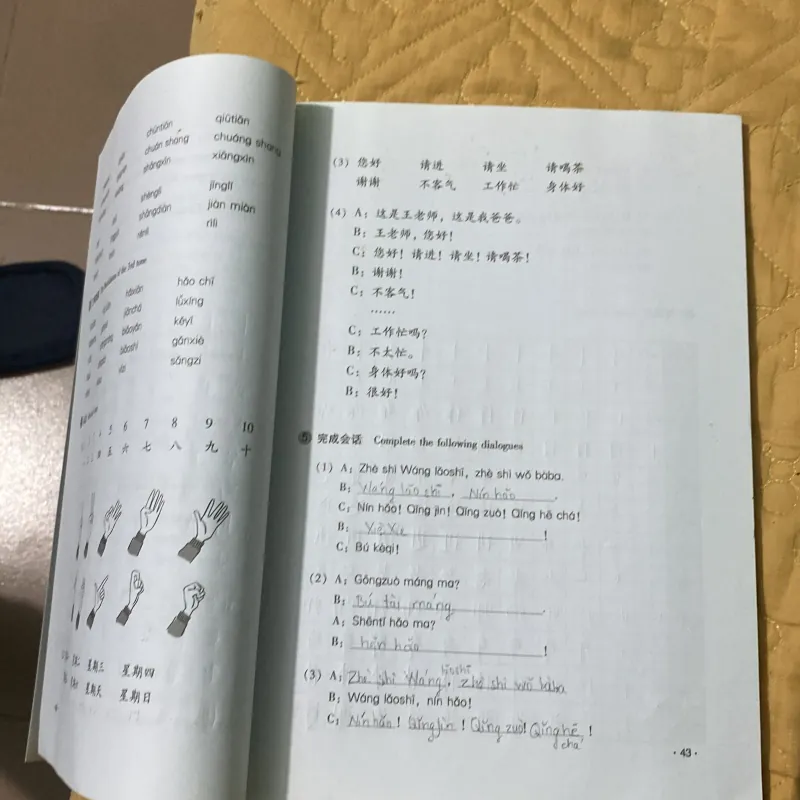 qiūtiān
chuáng shang
xiāngxìn
jīnglǐ
shāngdiàn jiàn miàn
rìlì
hǎo chī
lǚxíng
kěyǐ
gānxiè
sǎngzi
5 6 7 8 9 10
五 六 七 八 九 十
星期三 星期四
星期天 星期日
(3) 您好 请进 请坐 请喝茶
谢谢 不客气 工作忙 身体好
(4) A: 这是王老师，这是我爸爸。
B: 王老师，您好！
C: 您好！请进！请坐！请喝茶！
B: 谢谢！
C: 不客气！
……
C: 工作忙吗？
B: 不太忙。
C: 身体好吗？
B: 很好！
5 完成会话 Complete the following dialogues
(1) A: Zhè shì Wáng lǎoshī, zhè shì wǒ bàba.
B: Wáng lǎo shī, Nín hǎo.
C: Nín hǎo! Qǐng jìn! Qǐng zuò! Qǐng hē chá!
B: Xiè Xie!
C: Bú kèqi!
(2) A: Gōngzuò máng ma?
B: Bú tài máng.
A: Shēntǐ hǎo ma?
B: hěn hǎo!
(3) A: Zhè shì Wáng lǎoshī, zhè shì wǒ bàba
B: Wáng lǎoshī, nín hǎo!
C: Nín hǎo! Qǐng jìn! Qǐng zuò! Qǐng hē chá!
·43·